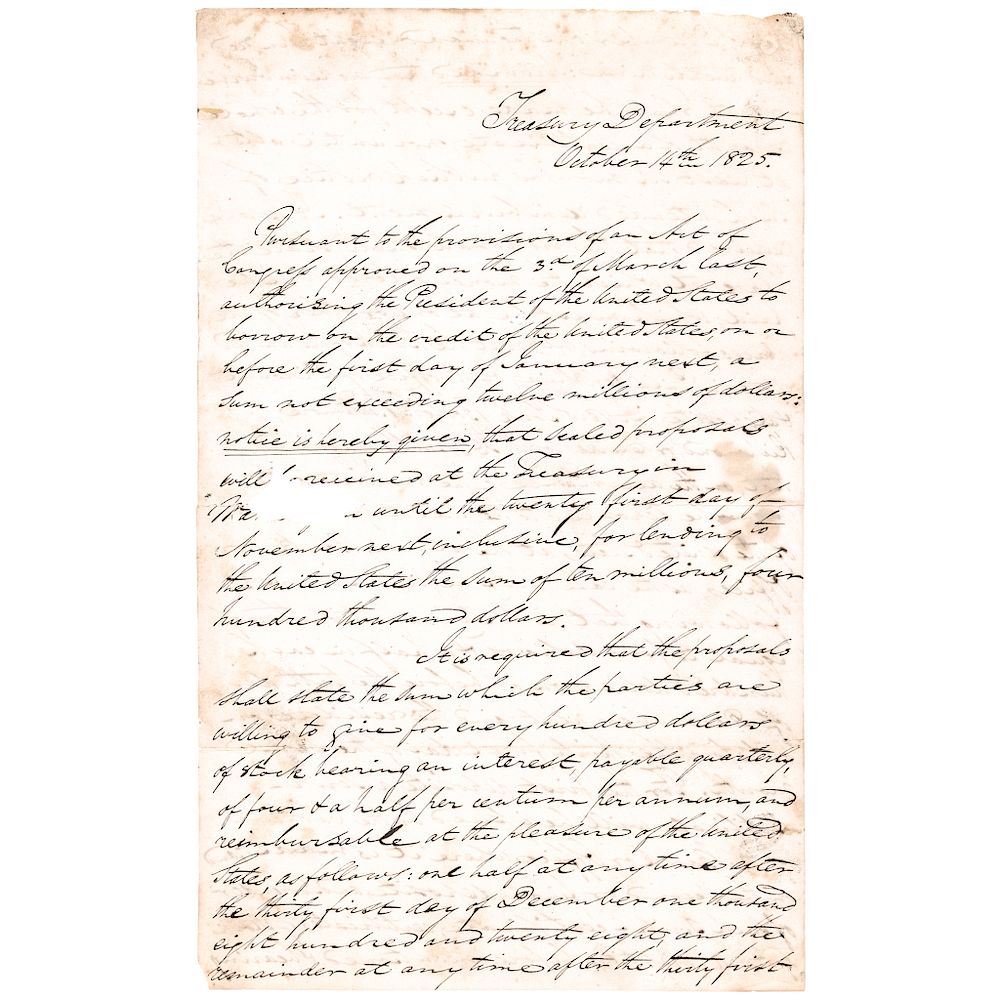 Treasury Department
October 14th 1825.
Pursuant to the provisions of an Act of
Congress approved on the 3d of March last,
authorising the President of the United States to
borrow on the credit of the United States, on or
before the first day of January next, a
sum not exceeding twelve millions of dollars:
notice is hereby given, that sealed proposals
will received at the Treasury in
Wa until the twenty first day of
November next, inclusive, for lending to
the United States the sum of ten millions, four
hundred thousand dollars.
It is required that the proposals
shall state the sum which the parties are
willing to give for every hundred dollars
of stock bearing an interest, payable quarterly,
of four & a half per centum per annum, and
reimbursable at the pleasure of the United
States, as follows: one half at any time after
the thirty first day of December one thousand
eight hundred and twenty eight, and the
remainder at any time after the thirty first